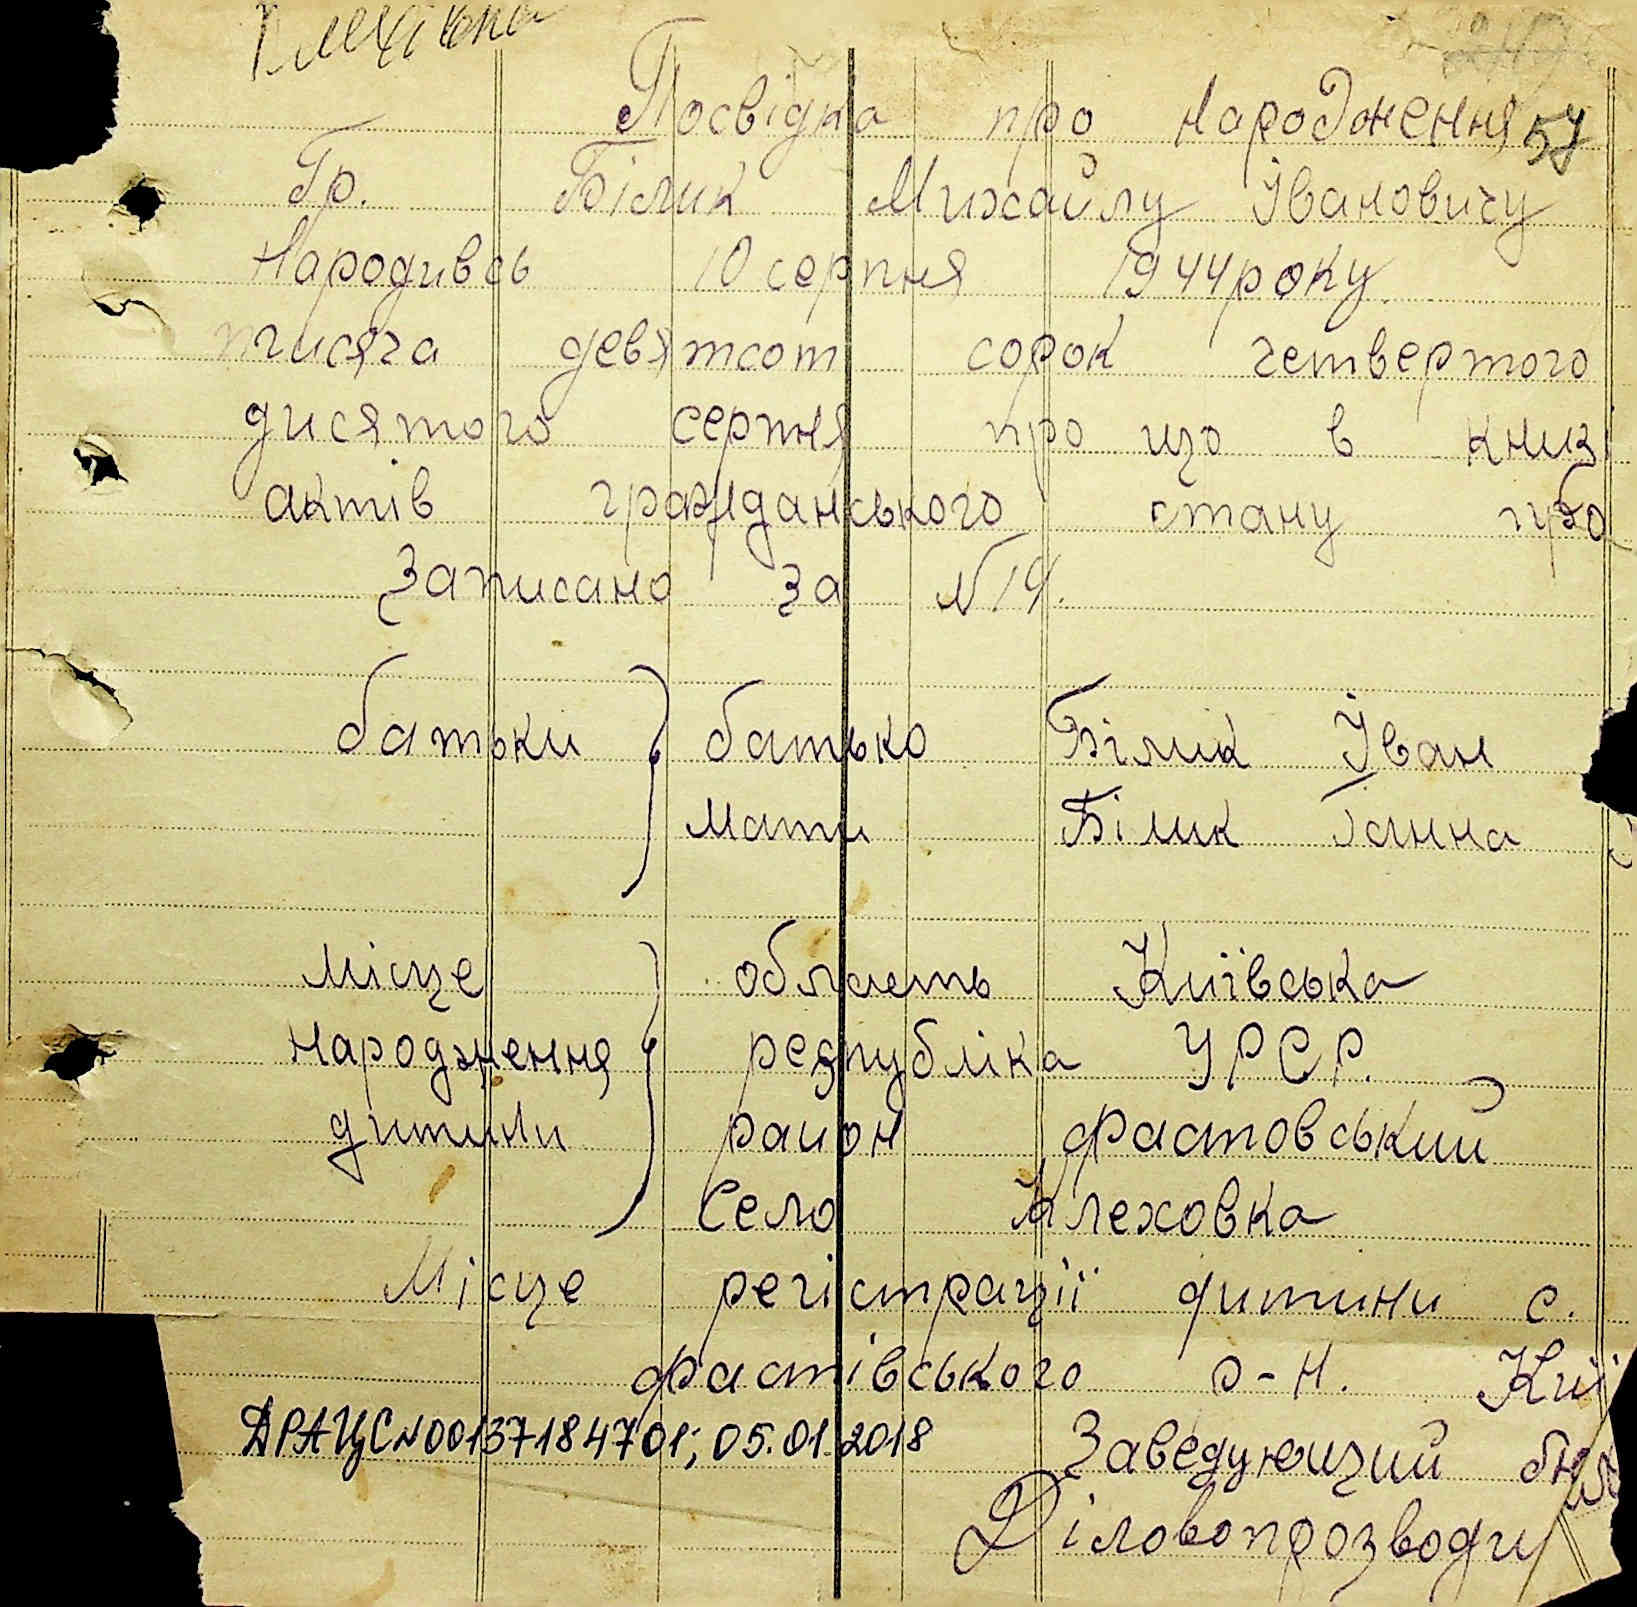 Посвідка про народження 57
Гр. Білик Михайлу Івановичу
Народивсь 10 серпня 1944 року.
тисяча девятсот сорок четвертого
дисятого серпня про що в книзі
актів гражданського стану
Записано за N 19.
батьки } батько Білик Іван
Мати Білик Ганна
Місце } область Київська
народження республіка УРСР.
дитини район Фастовський
Село
Місце регістрації дитини с.
Фастівського р-н. Киї
ДРАЦС N00137184701; 05.01.2018 Заведующий бюро
Діловопрозводи